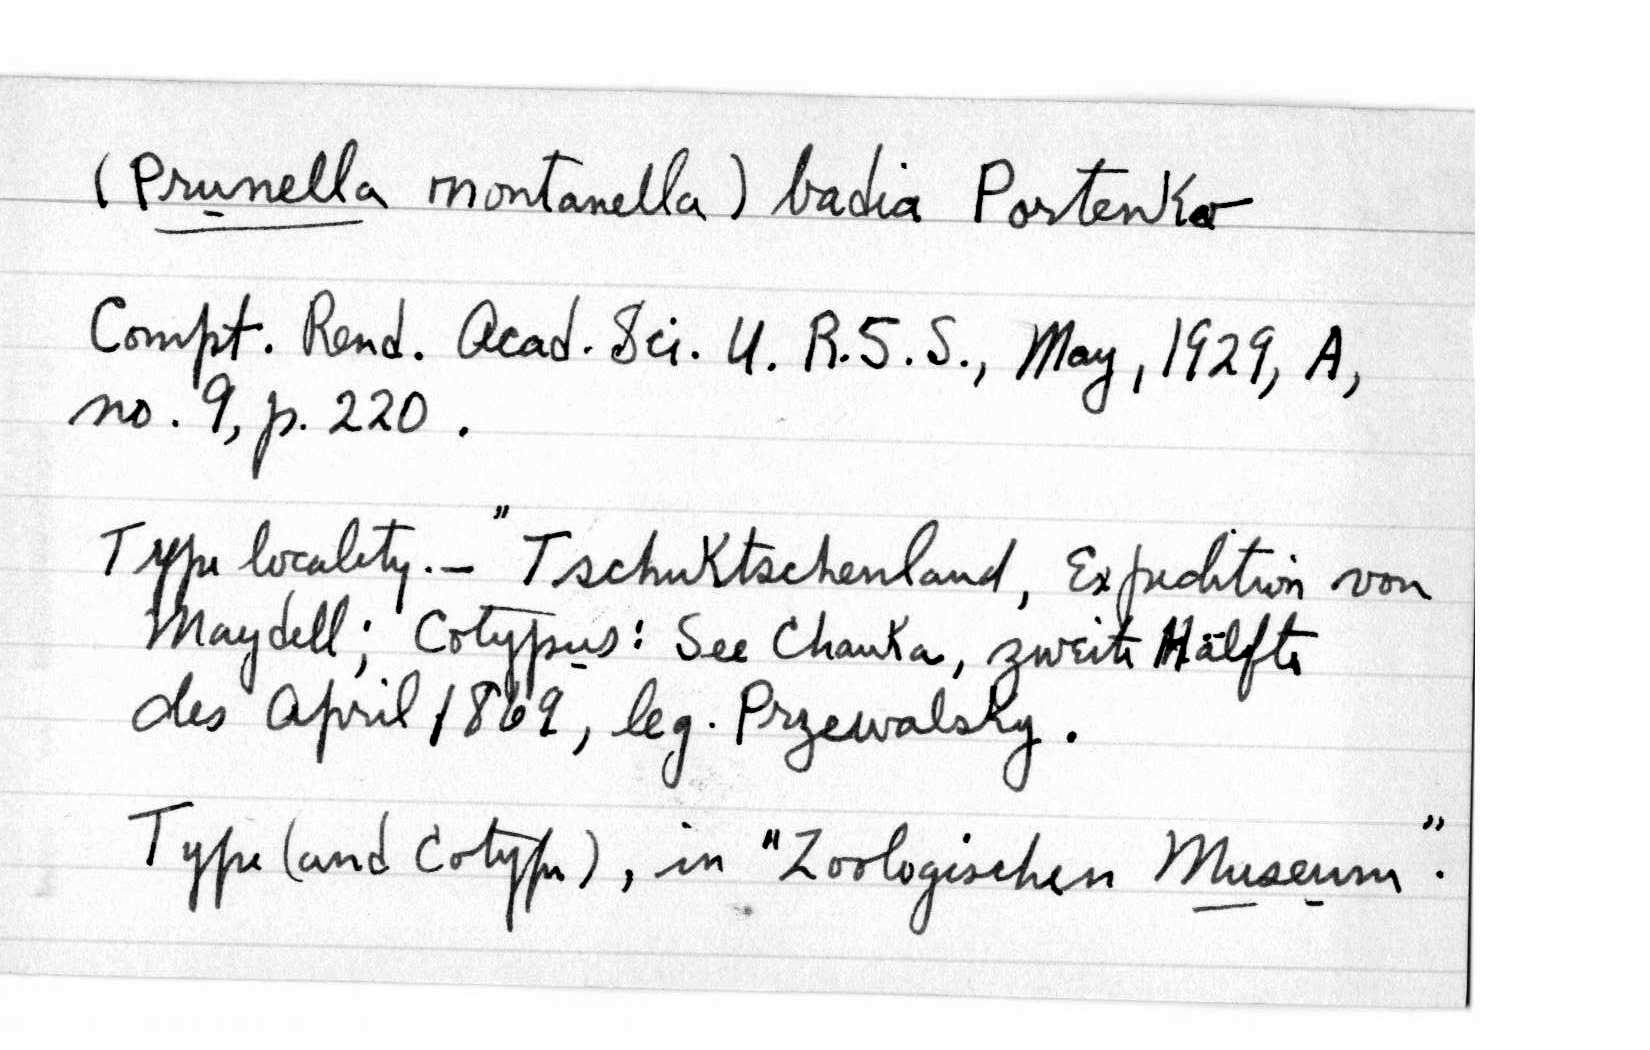 (Prunella montanella) badia Portenko
Compt. Rend. Acad. Sci. U. R. S. S., May, 1929, A,
no. 9, p. 220.
Type locality.— "Tschuktschenland, Expedition von
Maydell; Cotypus: See Chanka, zweite Hälfte
des April 1869, leg. Przewalsky.
Type (and Cotype), in "Zoologischen Museum".